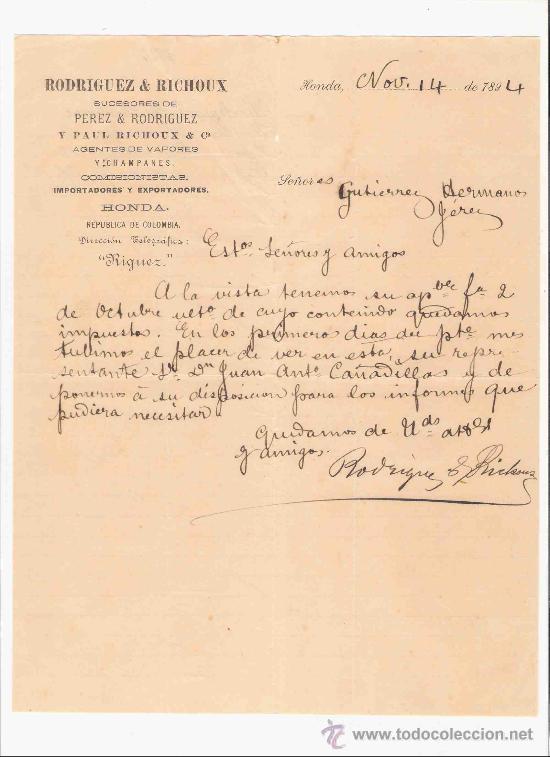 RODRIGUEZ & RICHOUX
SUCESORES DE
PEREZ & RODRIGUEZ
Y PAUL RICHOUX & Cº
AGENTES DE VAPORES
Y CHAMPANES.
COMISIONISTAS,
IMPORTADORES Y EXPORTADORES.
HONDA.
REPUBLICA DE COLOMBIA.
Dirección Telegráfica:
"Riguez."
Honda, Nov. 14 de 1894
Señores
Gutierrez Hermanos
Jérez
Estos Señores y amigos
A la vista tenemos su apble fa 2
de Octubre ulto de cuyo contenido quedamos
impuestos. En los primeros dias del pte mes
tubimos el placer de ver en esta, su repre-
sentante Sr Dn Juan Anto Cañadillas y de
ponernos á su disposicion para los informes que
pudiera necesitar.
Quedamos de Uds
y amigos.
Rodriguez & Richoux
todocoleccion
www.todocoleccion.net